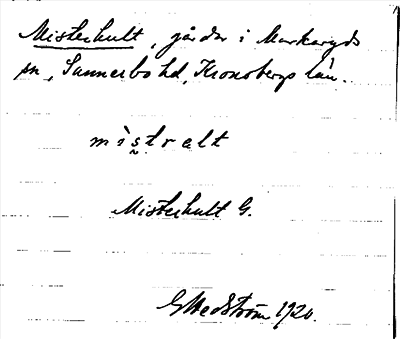 Misterhult, gårdar i Markaryds
sn, Sunnerbo hd, Kronobergs län.
mìstralt
Misterhult G.
G Hedström 1920.